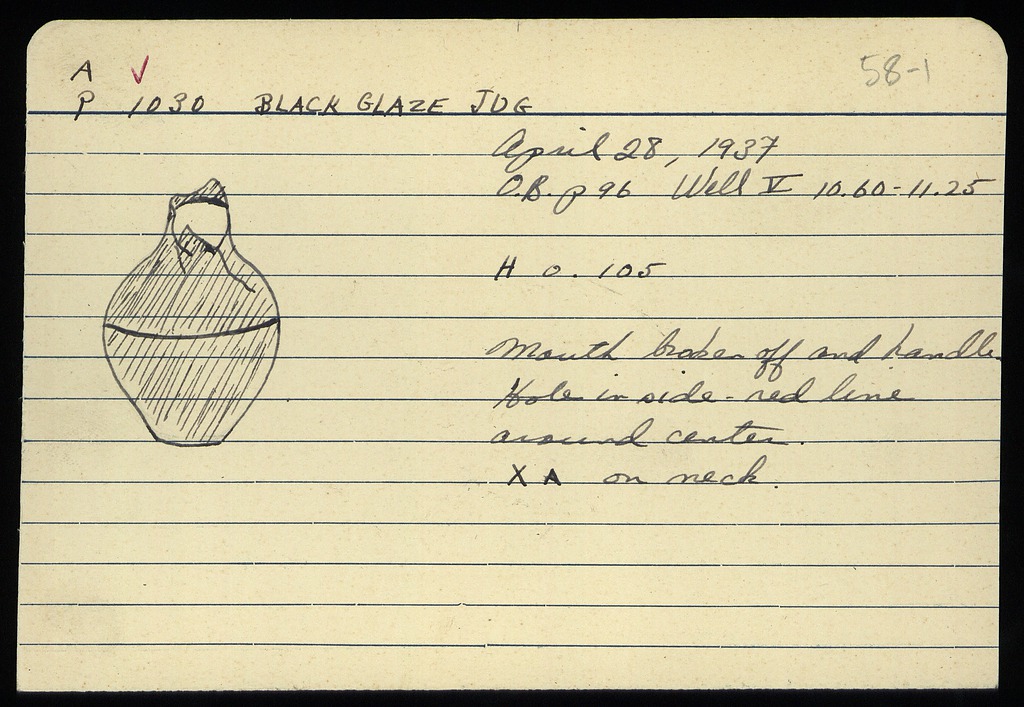 A ✓ 58-1
P 1030 BLACK GLAZE JUG
April 28, 1937
O.B. p 96 Well V 10.60-11.25
H 0.105
Mouth broken off and handle
Hole in side - red line
around center.
X A on neck.